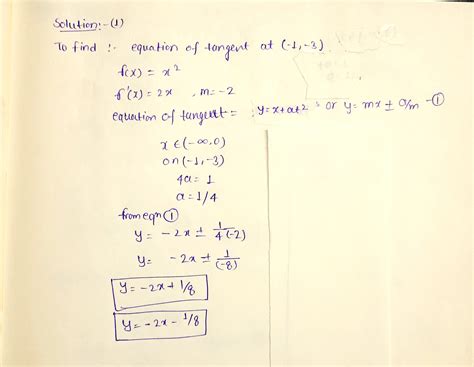 Solution:-(1)
To find :- equation of tangent at (-1,-3)
f(x) = x²
f'(x) = 2x , m=-2
equation of tangent = y=x+at² or y= mx ± a/m -①
x ∈(-∞,0)
on(-1,-3)
4a= 1
a=1/4
from eqn ①
y= -2x ± 1/4(-2)
y= -2x ± 1/(-8)
y= -2x+ 1/8
y= -2x - 1/8